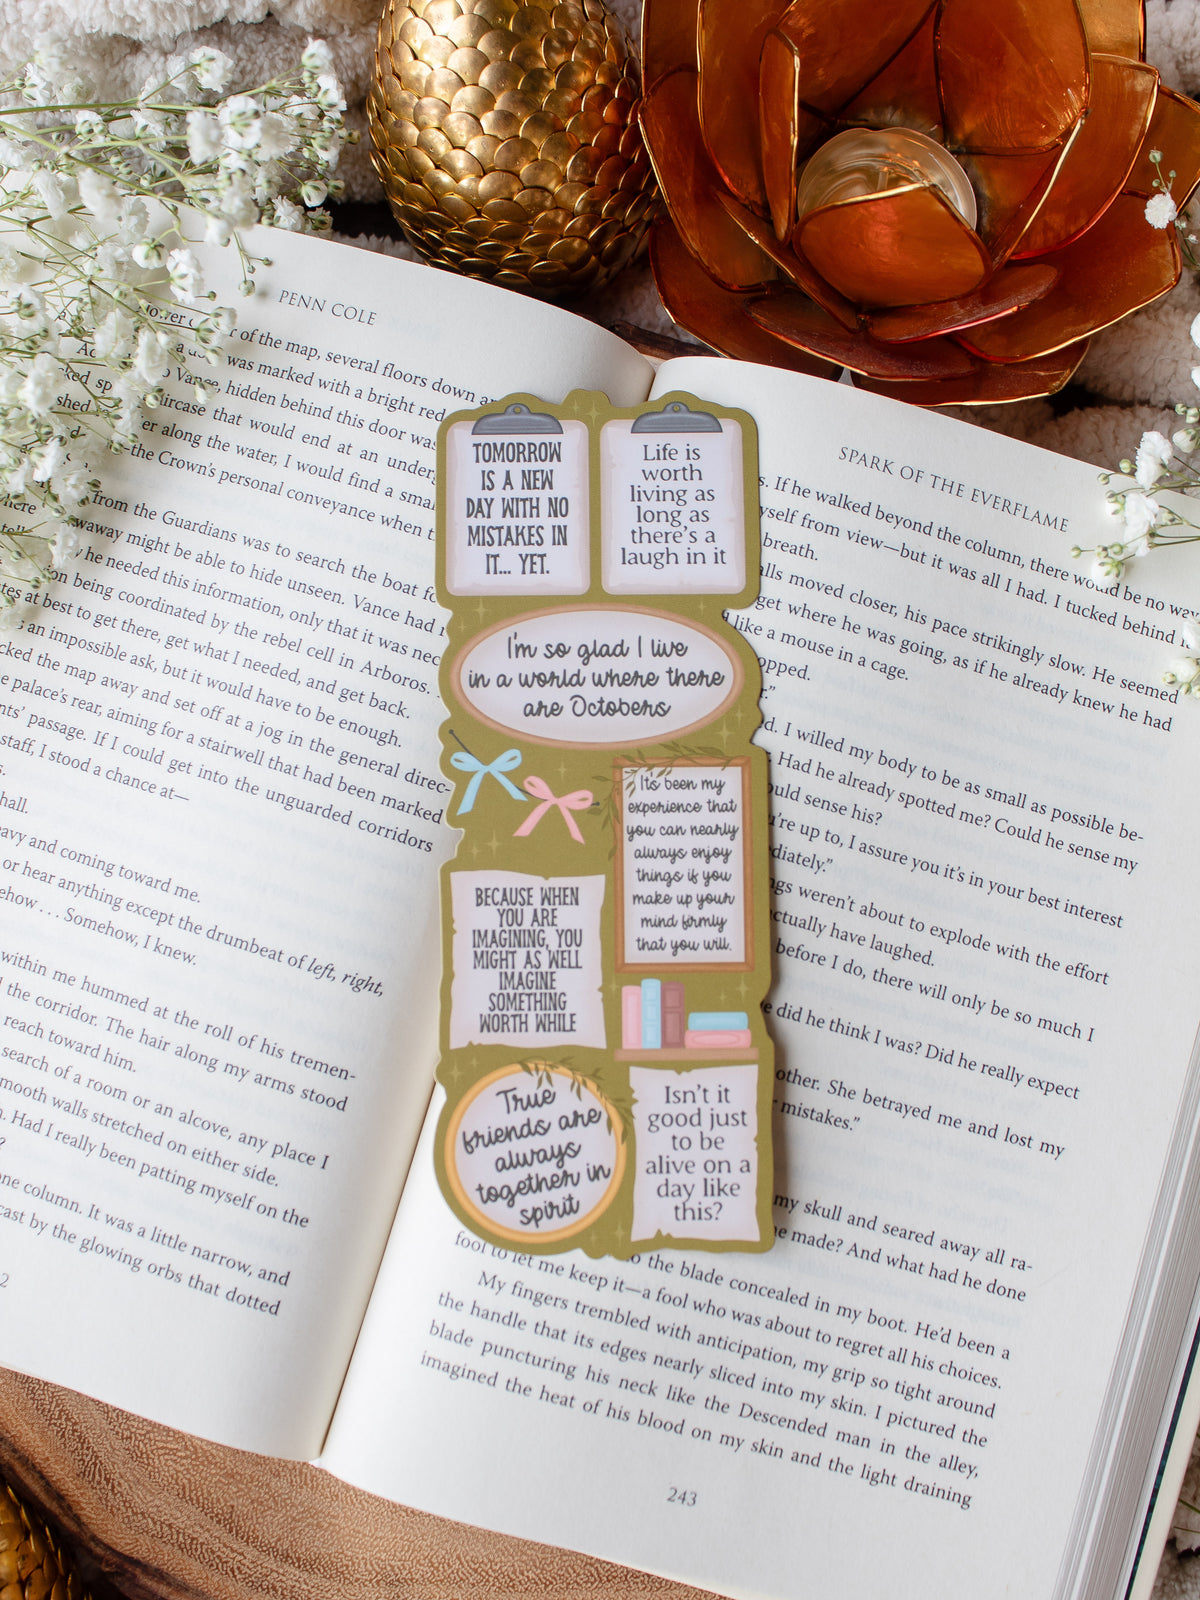 PENN COLE
of the map, several floors down
was marked with a bright red
Vance, hidden behind this door was
aircase that would end at an
along the water, I would find a
—the Crown's personal conveyance when
from the Guardians was to search the boat
away might be able to hide unseen. Vance had
he needed this information, only that it was
being coordinated by the rebel cell in Arboros.
at best to get there, get what I needed, and get back.
an impossible ask, but it would have to be enough.
the map away and set off at a jog in the general direc-
palace's rear, aiming for a stairwell that had been marked
passage. If I could get into the unguarded corridors
staff, I stood a chance at—
hall.
and coming toward me.
or hear anything except the drumbeat of left, right,
. . . Somehow, I knew.
within me hummed at the roll of his tremen-
the corridor. The hair along my arms stood
reach toward him.
search of a room or an alcove, any place I
smooth walls stretched on either side.
Had I really been patting myself on the
one column. It was a little narrow, and
cast by the glowing orbs that dotted
SPARK OF THE EVERFLAME
If he walked beyond the column, there would be no way
myself from view—but it was all I had. I tucked behind
breath.
moved closer, his pace strikingly slow. He seemed
get where he was going, as if he already knew he had
like a mouse in a cage.
I willed my body to be as small as possible be-
Had he already spotted me? Could he sense my
could sense his?
you're up to, I assure you it's in your best interest
weren't about to explode with the effort
actually have laughed.
before I do, there will only be so much I
did he think I was? Did he really expect
other. She betrayed me and lost my
mistakes."
my skull and seared away all ra-
made? And what had he done
fool to let me keep it—a fool who was about to regret all his choices.
the blade concealed in my boot. He'd been a
My fingers trembled with anticipation, my grip so tight around
the handle that its edges nearly sliced into my skin. I pictured the
blade puncturing his neck like the Descended man in the alley,
imagined the heat of his blood on my skin and the light draining
243
TOMORROW
IS A NEW
DAY WITH NO
MISTAKES IN
IT... YET.
Life is
worth
living as
long as
there's a
laugh in it
I'm so glad I live
in a world where there
are Octobers
It's been my
experience that
you can nearly
always enjoy
things if you
make up your
mind firmly
that you will.
BECAUSE WHEN
YOU ARE
IMAGINING, YOU
MIGHT AS WELL
IMAGINE
SOMETHING
WORTH WHILE
True
friends are
always
together in
spirit
Isn't it
good just
to be
alive on a
day like
this?